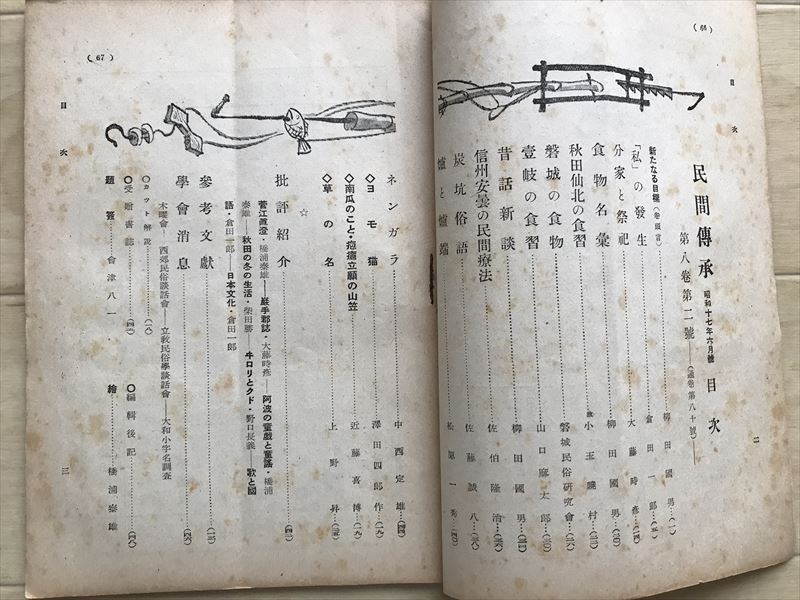 (66)
目次
民間傳承 昭和十七年六月號 目次
第八卷第二號 ―(通卷第八十號)―
新たなる目標(卷頭言)……柳田國男…(一)
「私」の發生……倉田一郎…(二)
分家と祭祀……大藤時彦…(一四)
食物名彙……柳田國男…(二〇)
秋田仙北の食習……小玉暁村…(二三)
磐城の食物……磐城民俗研究會…(二六)
壹岐の食習……山口麻太郎…(三〇)
昔話新談……柳田國男…(三一)
信州安曇の民間療法……佐伯隆治…(三六)
炭坑俗語……佐藤誠八…(三八)
爐と爐端……松原一秀
二
(67)
目次
ネンガラ……中西定雄
◇ヨモ猫……澤田四郎作…(一九)
◇南瓜のこと・疱瘡立願の山笠……近藤喜博…(一九)
◇草の名……上野昇…(三五)
☆
批評紹介……(四二)
菅江眞澄・橋浦泰雄―巖手郡誌・大藤時彦―阿波の童戲と童謠・橋浦
泰雄―秋田の冬の生活・柴田勝―牛ロリとクド・野口長義―歌と國
語・倉田一郎―日本文化・倉田一郎
參考文獻……(一三)
學會消息……(四六)
木曜會―西郊民俗談話會―立教民俗學談話會―大和小字名調査
〇カット解說……(一八)
〇受贈書誌……
〇編輯後記……(四八)
題簽……會津八一
繪……橋浦泰雄
三